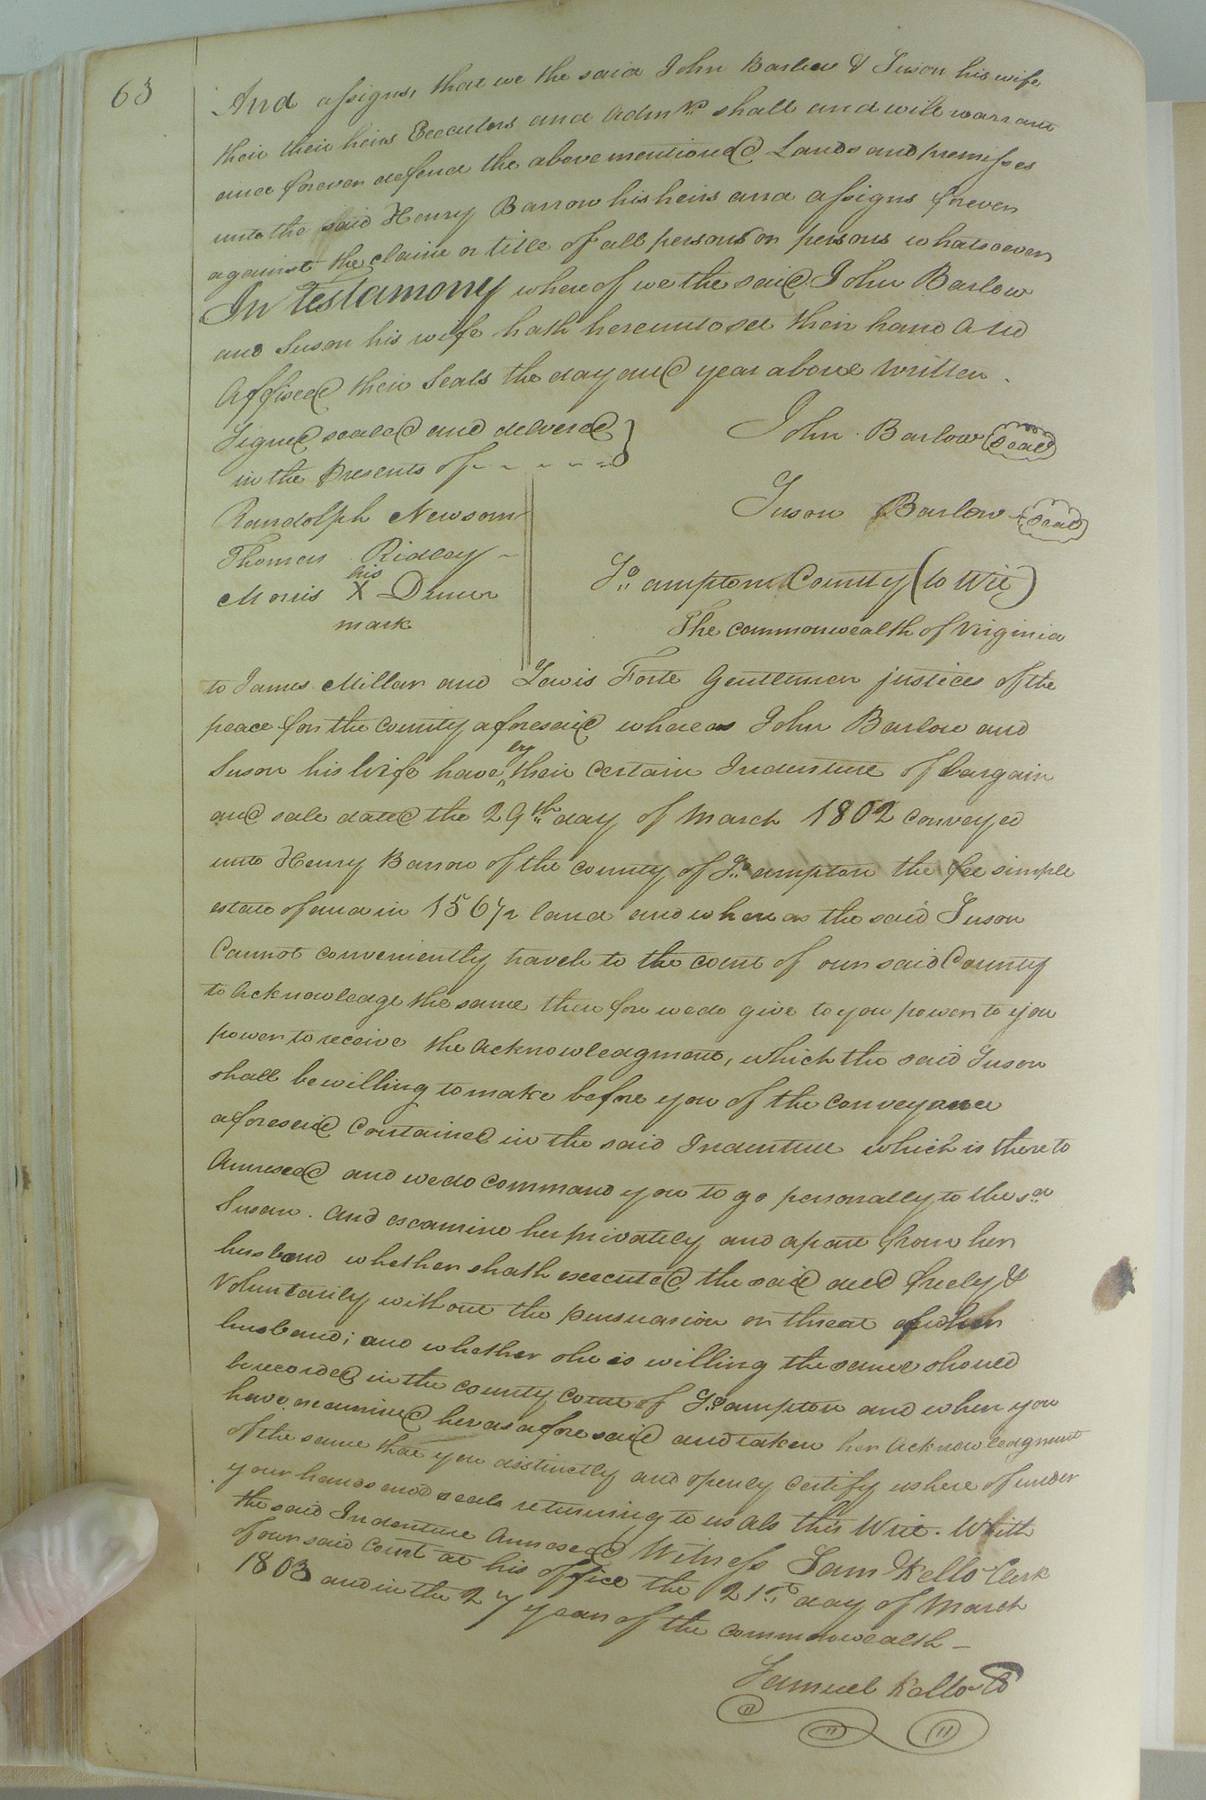 63
And assigns, that we the said John Barlow & Suson his wife,
their their heirs Executors and Admrs shall and will warrant
and forever defend the above mentioned Lands and premisses
unto the said Henry Barrow his heirs and assigns forever
against the claim or title of all persons or persons whatsoever
In Testamony whereof we the said John Barlow
and Suson his wife hath hereunto set their hand And
Affixed their Seals the day and year above written.
Signed sealed and delvered }
in the Presents of - - - - - -
John Barlow (seal)
Suson Barlow (seal)
Randolph Newsom
Thomas Ridley
his
Morris X
mark
So ampton County (to Wit)
The commonwealth of Virginia
to James Millar and Lewis Forte Gentlemen justices of the
peace for the county aforesaid whereas John Barlow and
Suson his Wife have by their certain Indenture of bargain
and sale dated the 29th day of March 1802 conveyed
unto Henry Barrow of the county of So ampton the fee simple
estate of and in 156½ land and where as the said Suson
Cannot conveniently travele to the court of our said County
to Acknowledge the same therefore we do give to you power to you
power to receive the Acknowledgment, which the said Suson
shall be willing to make before you of the conveyance
aforesaid contained in the said Indenture which is there to
Annexed and we do command you to go personally to the sd
Susan. and examine her privately and apart from her
husband whether shath executed the said deed freely &
Voluntarily without the persuasion or threat of her
husband; and whether she is willing the same should
be recorded in the county Court of So ampton and when you
have examined her as afore said and taken her Acknowledgment
of the same that you distinctly and openly certify us here of under
your hands and seals returning to us als this Writ. With
the said Indenture Annexed Witness Sam Kello Clerk
of our said Court at his office the 21st day of March
1803 and in the 27 year of the commonwealth -
Samuel Kello